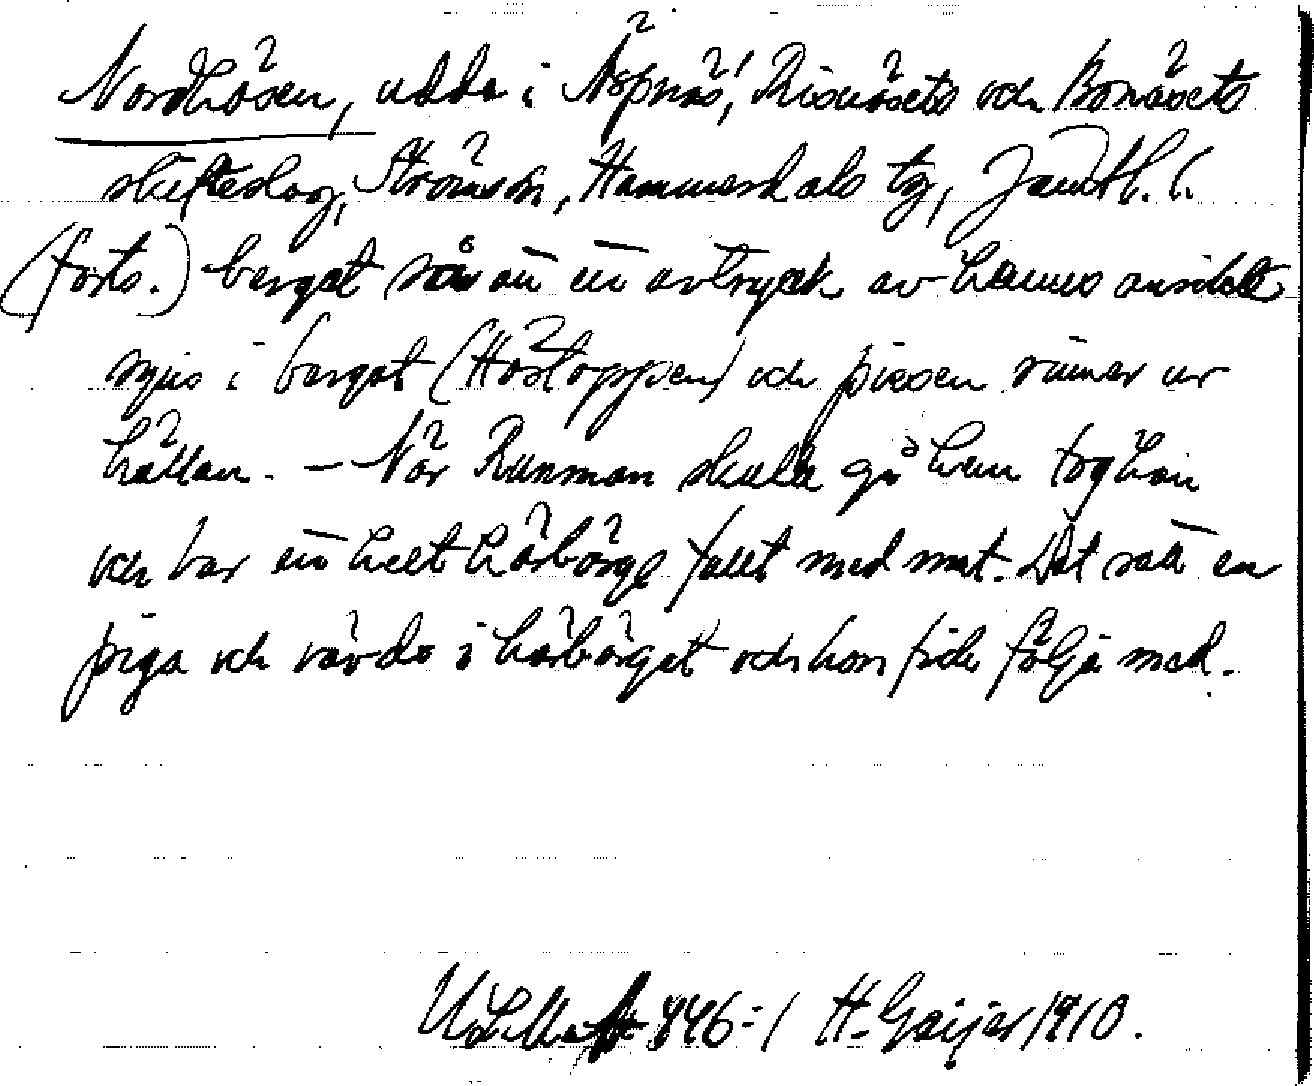 Nordhåsen, udde i Äspnäs, Risnäsets och Bonäsets
skifteslag, Ströms sn, Hammerdals tg, Jämtl. l.
(forts.) berget står än en avtryck av hennes ansikte
syns i berget (Håstoppen) och pissen rinner ur
hällan. – När Runman skulle gå hem tog han
och bar en helt härbärge fullt med mat. Det satt en
piga och vävde i härbärget och hon fick följa med.
ULMA 846:1 H. Geijer 1910.